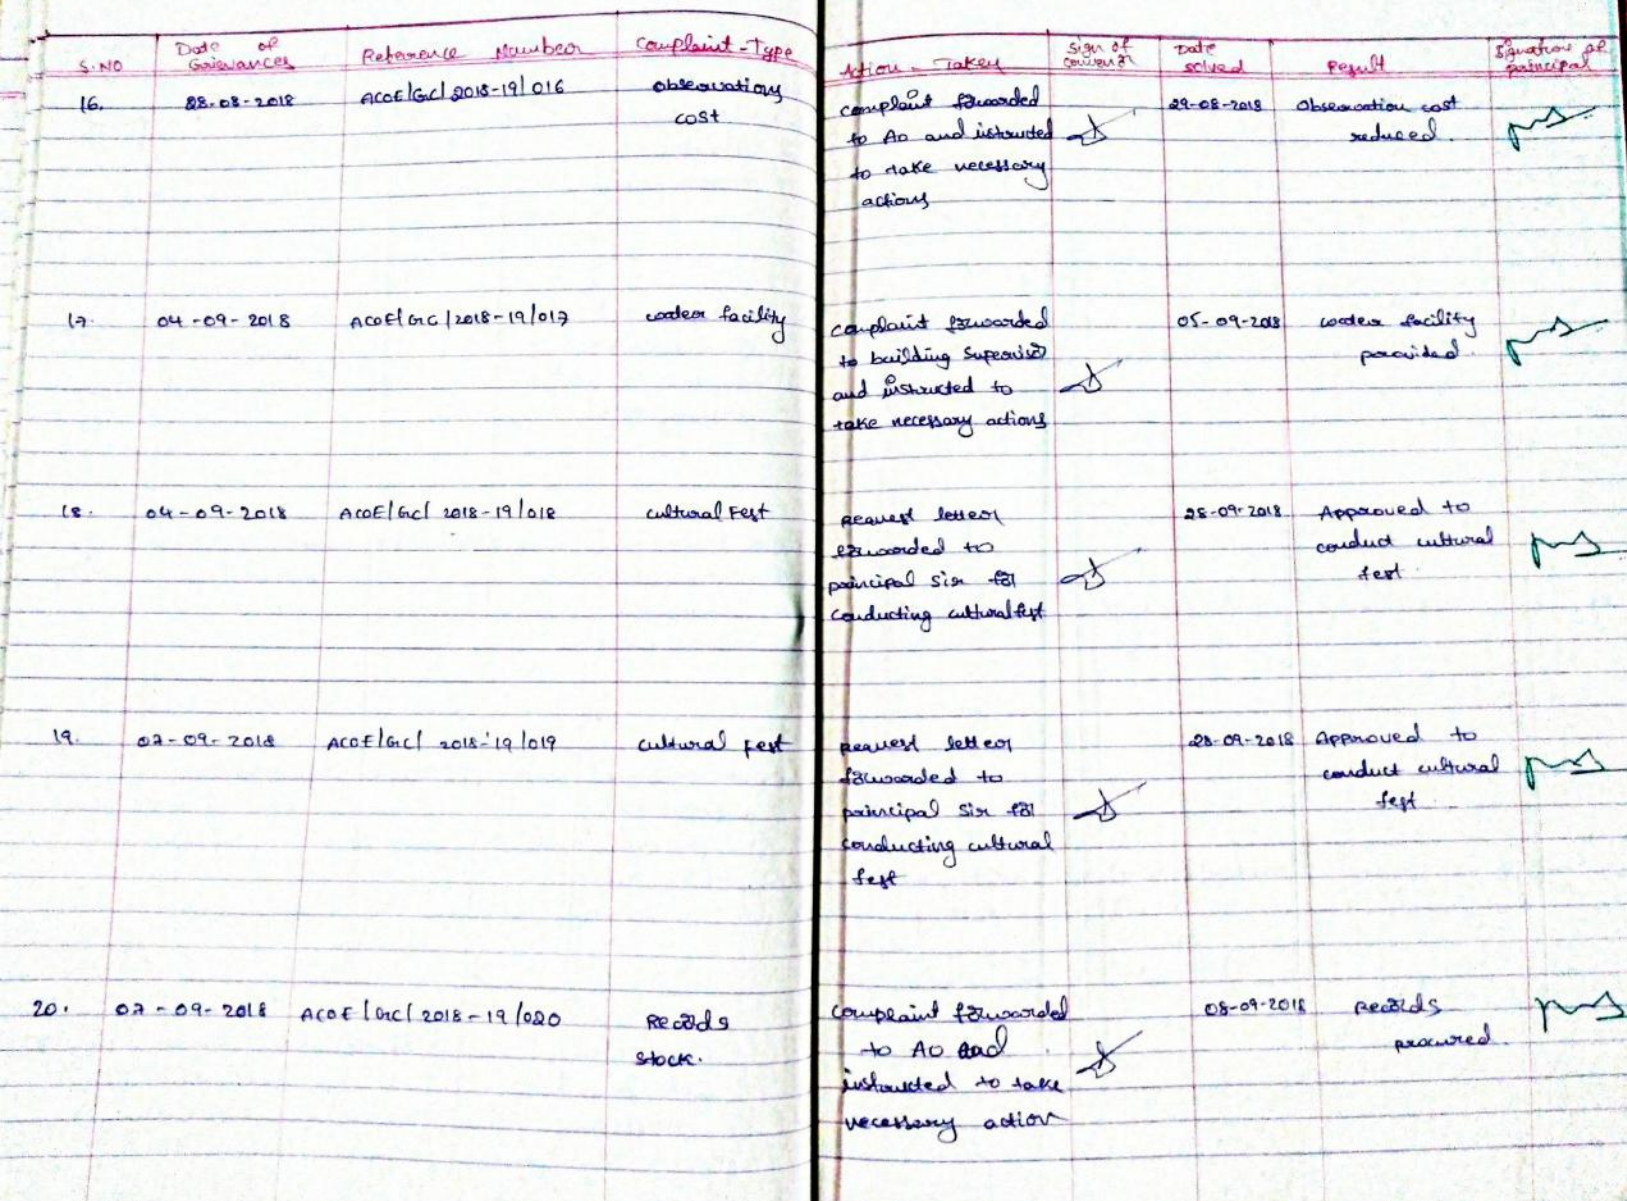 S.NO
Date of Grievances
Reference Number
Complaint-Type
Action - Taken
Sign of convenor
Date solved
Result
Signature of principal
16.
28-08-2018
ACOE/GC/2018-19/016
Observations
cost
complaint forwarded
to AO and istructed
to take necessary
actions
29-08-2018
Observation cost
reduced.
17.
04-09-2018
ACOE/GC/2018-19/017
water facility
complaint forwarded
to building Supervisor
and instructed to
take necessary actions
05-09-2018
water facility
provided.
18.
04-09-2018
ACOE/GC/2018-19/018
cultural Fest
Request letter
forwarded to
principal sir for
conducting cultural fest
28-09-2018
Approved to
conduct cultural
fest.
19.
07-09-2018
ACOE/GC/2018-19/019
cultural Fest
Request letter
forwarded to
principal sir for
conducting cultural
fest
28-09-2018
Approved to
conduct cultural
fest.
20.
07-09-2018
ACOE/GC/2018-19/020
Records
stock.
complaint forwarded
to AO and
instructed to take
necessary action
08-09-2018
Records
procured.